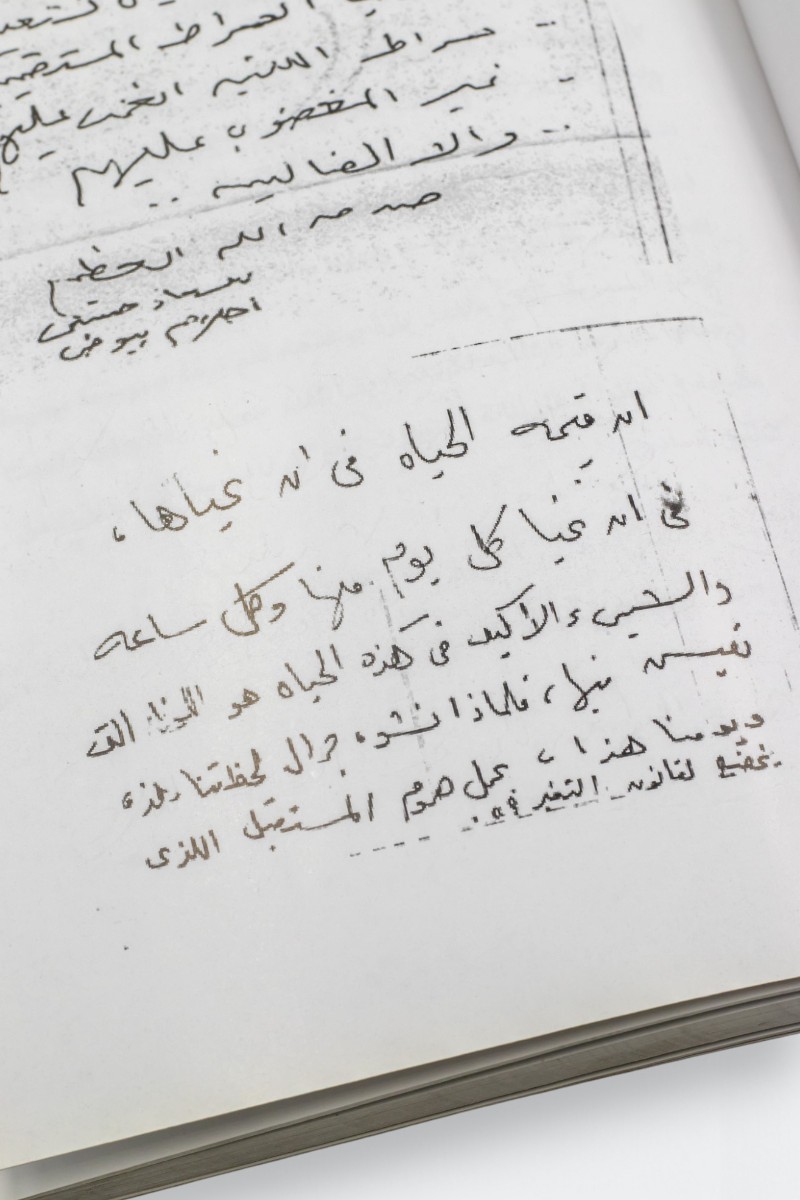 الصراط المستقيم
صراط اللذين انعمت عليهم
غير المغضوب عليهم
والا الضاليين ..
صدق الله العظيم
سعاد حسنى
احلام بيوض
ان قيمه الحياه فى ان نحياها،
فى ان نحيا كل يوم منها وكل ساعه
والشيىء الأكيد فى هذه الحياه هو التى
نعيش فيها، فلماذا نشوه جمال لحظتنا هذه،
ويومنا هذا بحمل هموم المستقبل اللذى
يخضع لقانون التغير ؟!